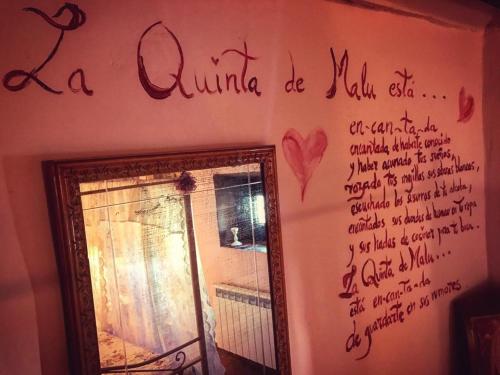 La Quinta de Malu está ...
en-can-ta-da
encantada de haberte conocido
y haber acunado tus sueños,
rozado tus mejillas sus sábanas blancas,
escuchado los susurros de tu alcoba,
encantados sus duendes de in tu ropa
y sus hadas de cocinar para tu bien.
La Quinta de Malu...
está en-can-ta-da
de guardarte en sus rumores